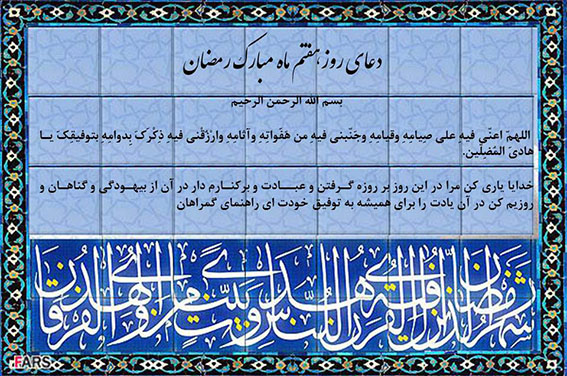 دعای روز هفتم ماه مبارک رمضان
بسم الله الرحمن الرحیم
اللهمّ اعنّی فیهِ علی صِیامِهِ وقیامِهِ وجَنّبنی فیهِ من هَفَواتِهِ وآثامِهِ وارْزُقْنی فیهِ ذِکْرَکَ بِدوامِهِ بتوفیقِکَ یـا
هادیَ المُضِلّین.
خدایا یاری کن مرا در این روز بر روزه گـرفتن و عبـادت و برکنارم دار در آن از بیهـودگی و گناهـان و
روزیم کن در آن یادت را برای همیشه به توفیق خودت ای راهنمای گمراهان
شهر رمضان الذی انزل فیه القرآن هدی للناس و بینات من الهدی و الفرقان
FARS